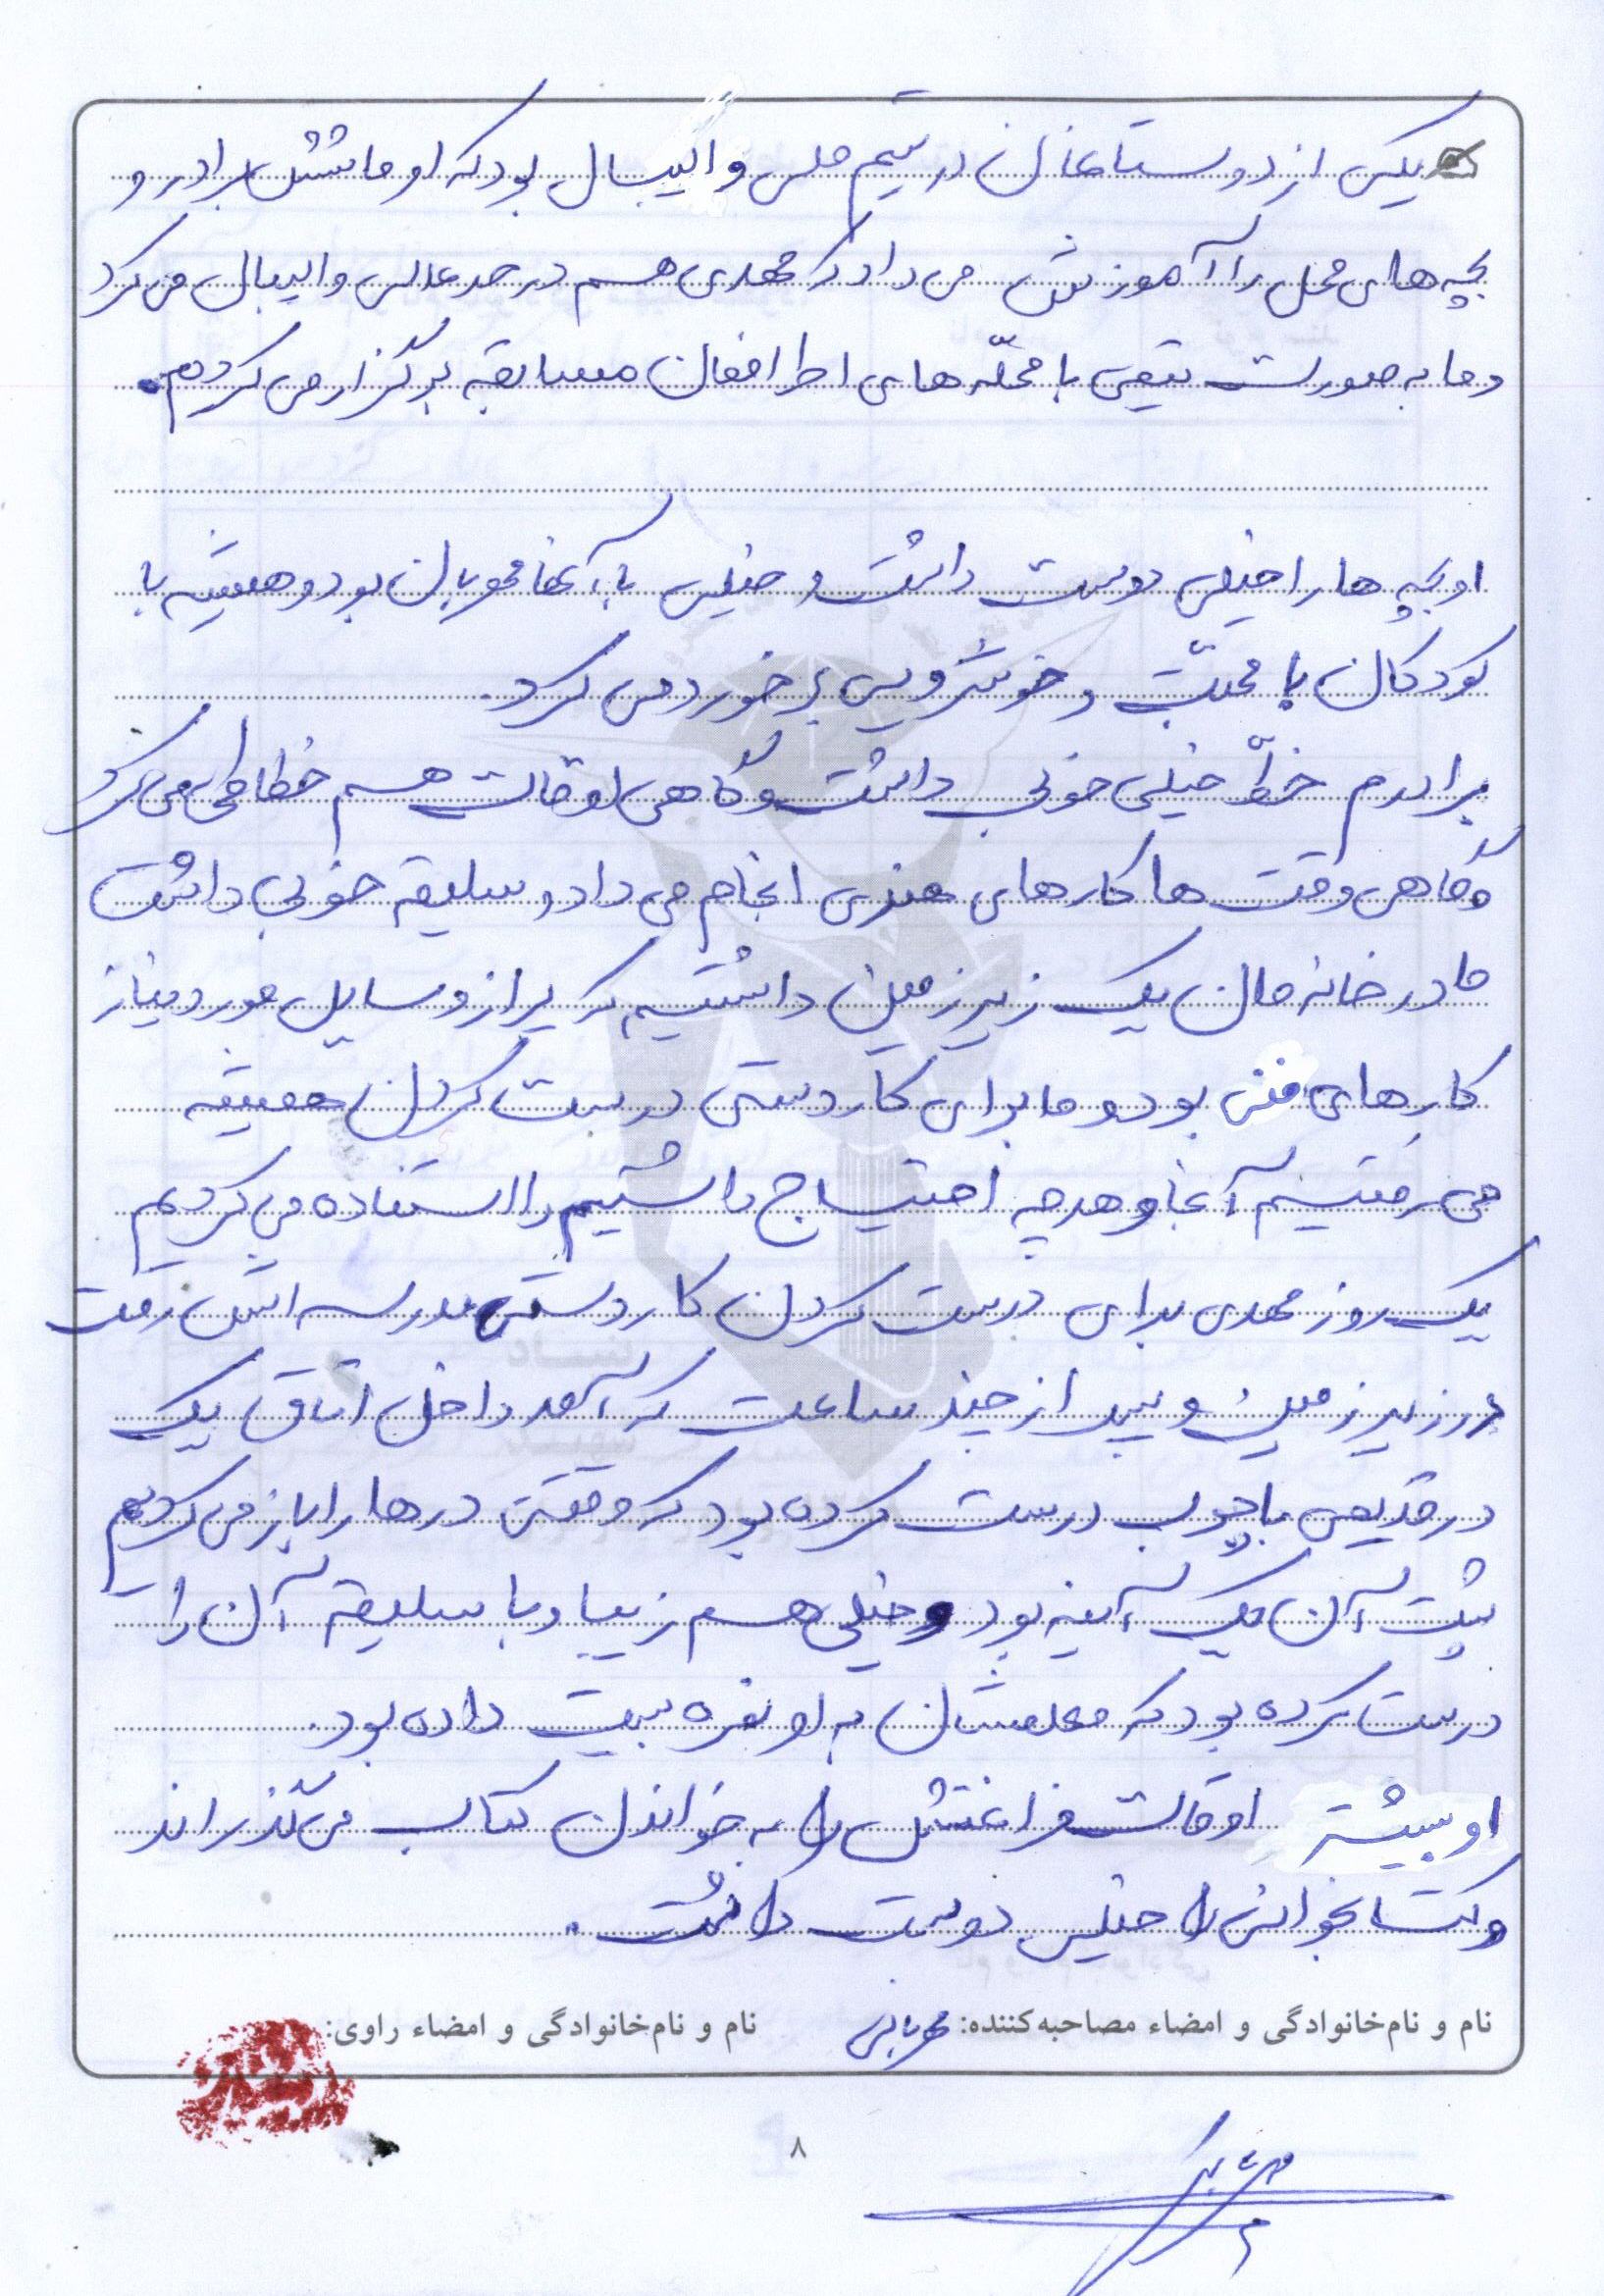 یکی از دوستانمان در تیم ملی والیبال بود که او ماتشش برادر و
بچه های محل را آموزش می داد که مهدی هم در حد عالی والیبال می کرد
و ما به صورت تیمی با محلّه های اطرافمان مسابقه برگزار می کردیم.
او بچه ها را خیلی دوست داشت و خیلی با آنها مهربان بود و همیشه با
کودکان با محبّت و خوشرویی برخورد می کرد.
برادرم خطّ خیلی خوبی داشت و گاهی اوقات هم خطاطی می کرد
و گاهی وقت ها کارهای هنری انجام می داد و سلیقه خوبی داشت
ما در خانه مان یک زیرزمین داشتیم که پر از وسایل مورد نیاز
کارهای فنی بود و ما برای کاردستی درست کردن همیشه
می رفتیم آنجا و هر چه احتیاج داشتیم را استفاده می کردیم
یک روز مهدی برای درست کردن کاردستی مدرسه اش رفت
در زیرزمین و بعد از چند ساعت که آمد داخل اتاق یک
در قدیمی با چوب درست کرده بود که وقتی درها را باز می کردیم
پشت آن یک آینه بود و خیلی هم زیبا و با سلیقه آن را
درست کرده بود که معلمشان به او نمره بیست داده بود.
او بیشتر اوقات فراغتش را به خواندن کتاب می گذراند
و کتابخوانی را خیلی دوست داشت.
نام و نام‌خانوادگی و امضاء مصاحبه‌کننده: نام و نام‌خانوادگی و امضاء راوی:
۸